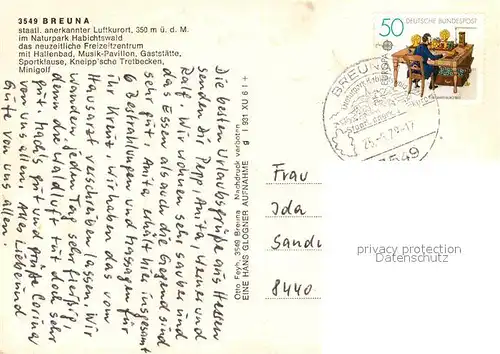 3549 BREUNA
staatl. anerkannter Luftkurort, 350 m ü. d. M.
im Naturpark Habichtswald
das neuzeitliche Freizeitzentrum
mit Hallenbad, Musik-Pavillon, Gaststätte,
Sportklause, Kneipp'sche Tretbecken,
Minigolf
Die besten Urlaubsgrüße aus Hessen
senden Dir Pepp, Anita, Werner und
Ralf. Wir wohnen sehr sauber und
das Essen als auch die Gegend sind
sehr gut. Anita erhält hier insgesamt
6 Bestrahlungen und Massagen für
ihr Kreuz, wir haben das vom
Hausarzt verschreiben lassen. Wir
wandern jeden Tag sehr fleißig,
denn die Waldluft tut doch sehr
gut. Mach's gut und grüße Corina
von uns allen. Alles Liebe und
Gute von uns allen.
Otto Feyh, 3549 Breuna Nachdruck verboten
EINE HANS GLOGNER AUFNAHME g I 931 XU 6 I +
50 DEUTSCHE BUNDESPOST
EUROPA
BREUNA
3549
Frau
Ida
Sandi
8440
privacy protection
Datenschutz